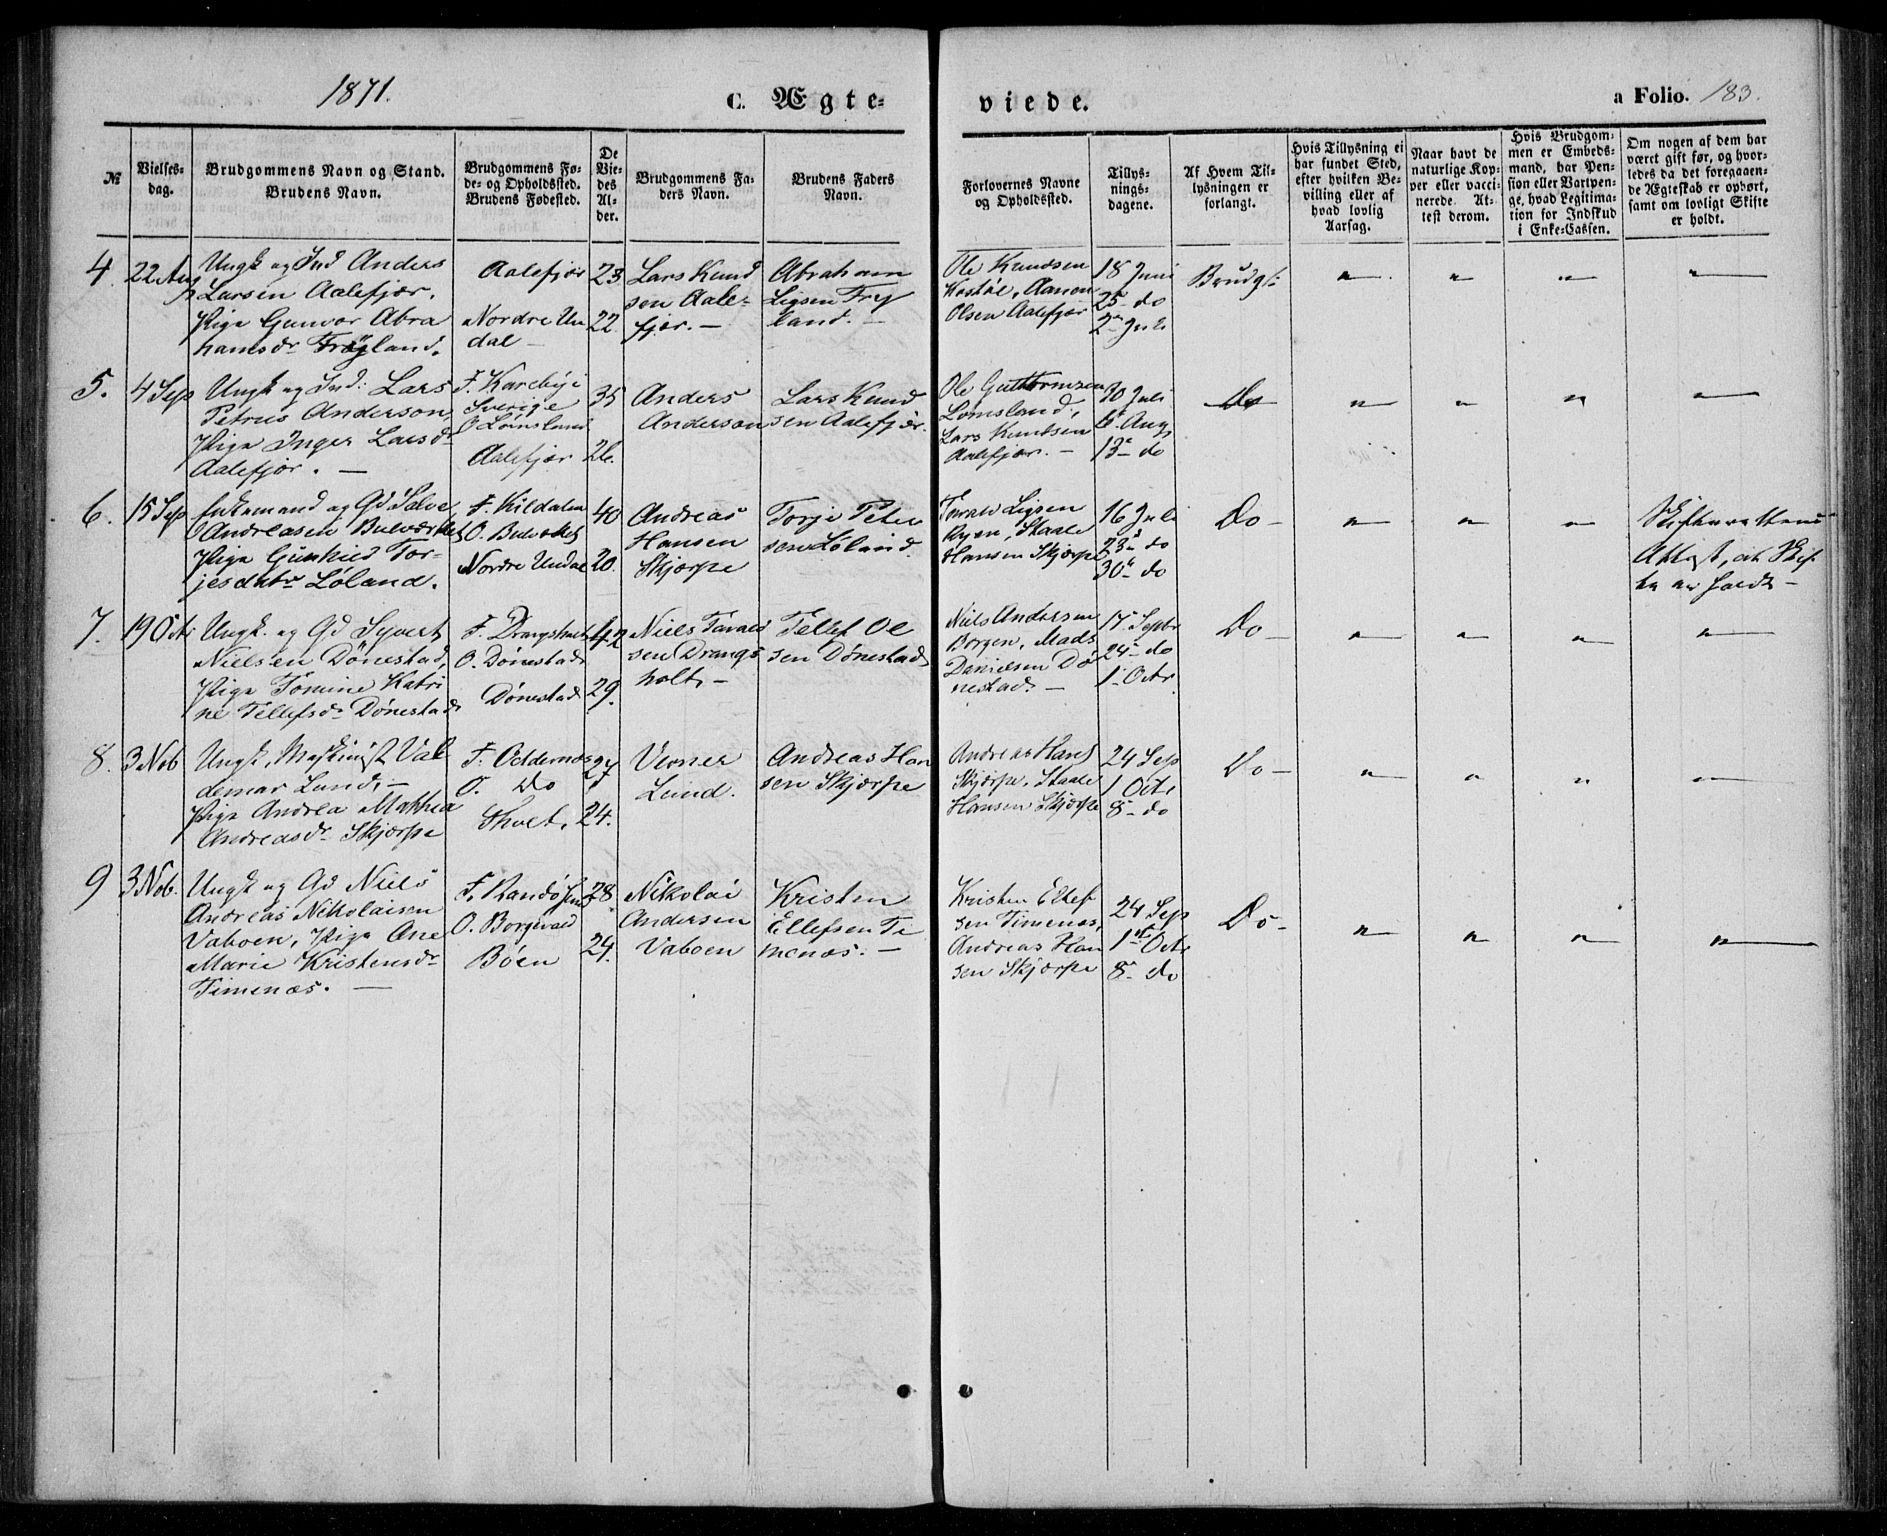 1871.
C. Ægte=
viede.
a Folio. 183.
№
Vielses-
dag.
Brudgommens Navn og Stand.
Brudens Navn.
Brudgommens Fø-
de- og Opholdssted.
Brudens Fødested.
De
Vie-
des
Al-
der.
Brudgommens Fa-
ders Navn.
Brudens Faders
Navn.
Forlovernes Navne
og Opholdssted.
Tillys-
nings-
dagene.
Af Hvem Til-
lysningen er
forlangt.
Hvis Tillysning ei
har fundet Sted,
efter hvilken Be-
villing eller af
hvad lovlig
Aarsag.
Naar havt de
naturlige Kop-
per eller vacci-
nerede. At-
test derom.
Hvis Brudgom-
men er Embeds-
mand, har Pen-
sion eller Vartpen-
ge, hvad Legitima-
tion for Indskud
i Enke-Cassen.
Om nogen af dem har
været gift før, og hvor-
ledes da det foregaaen-
de Ægteskab er ophørt,
samt om lovligt Skifte
er holdt.
4
22 Aug
Ungk og Ind Anders
Larsen Aalefjær.
Pige Gunvor Abra
hamsdr Frøyland.
Aalefjær
Nordre Un
dal
23
22.
Lars Knud
sen Aale-
fjær. —
Abraham
Ligsen Frÿ
land. —
Ole Knudsen
Kostøl, Aanon
Olsen Aalefjær
18 Juni
25 - do
2 - Juli
Brudg:
5.
4 Sep
Ungk og Ind: Lars
Petrus Anderson
Pige Inger Larsdr
Aalefjær. —
F. Kareby i
Sverige
O. Lømsland
Aalefjær
35
26.
Anders
Anderson
Lars Knud
sen Aalefjær.
Ole Guttormsen
Lømsland,
Lars Knudsen
Aalefjær. —
30 Juli
6 - Aug
13 - do
Do
6.
15 Sep
Enkemand og Gd Salve
Andreasen Bulværket
Pige Gunhild Tor-
jesdatr Løland.
F. Kildalen
O. Bulvrket
Nordre Undal
40
20.
Andreas
Hansen
Skjærpe
Torje Peter
sen Løland.
Ligsen
Ryen, Staale
Hansen Skjærpe
16 Juli
23 - do
30 - do
Do -
Skifterettens
Attest, at Skif
te er holdt —
7.
19 Oct
Ungk. og Gd Syvert
Nielsen Dönestad,
Pige Tomine Katri
ne Tellefsdr Dönestad
F. Drangsholt
O. Dönestad
Dönestad
42
29.
Niels Tarald
sen Drangs
holt, —
Tellef Ol
sen Dönestad
Niels Andersen
Borgen, Mads
Danielsen Dö
nestad. —
17 Septbr
24 - do
1 - Octr.
Do -
8.
3 Nob
Ungk, Maskinist Val
demar Lund, —
Pige Andrea Mathea
Andreasdr Skjærpe
F. Oddernæs
O. Do
27
24.
Verner
Lund.
Andreas Han
sen Skjærpe
Andreas Hans
Skjærpe, Staale
Hansen Skjærpe
24 Sep
1 Octr
8 - do
Do -
9
3 Nob.
Ungk og Gd Niels
Andreas Nikolaisen
Vaboen, Pige Ane
Marie Kristensdr
Timenæs. —
F. Randösund
O. Borgevald
Böen
28
24.
Nikolai
Andersen
Vaboen
Kristen
Ellefsen Ti
menæs. —
Kristen Ellef
sen Timenæs,
Andreas Han
sen Skjærpe
24 Sep
1 Octr
8 - do
Do -